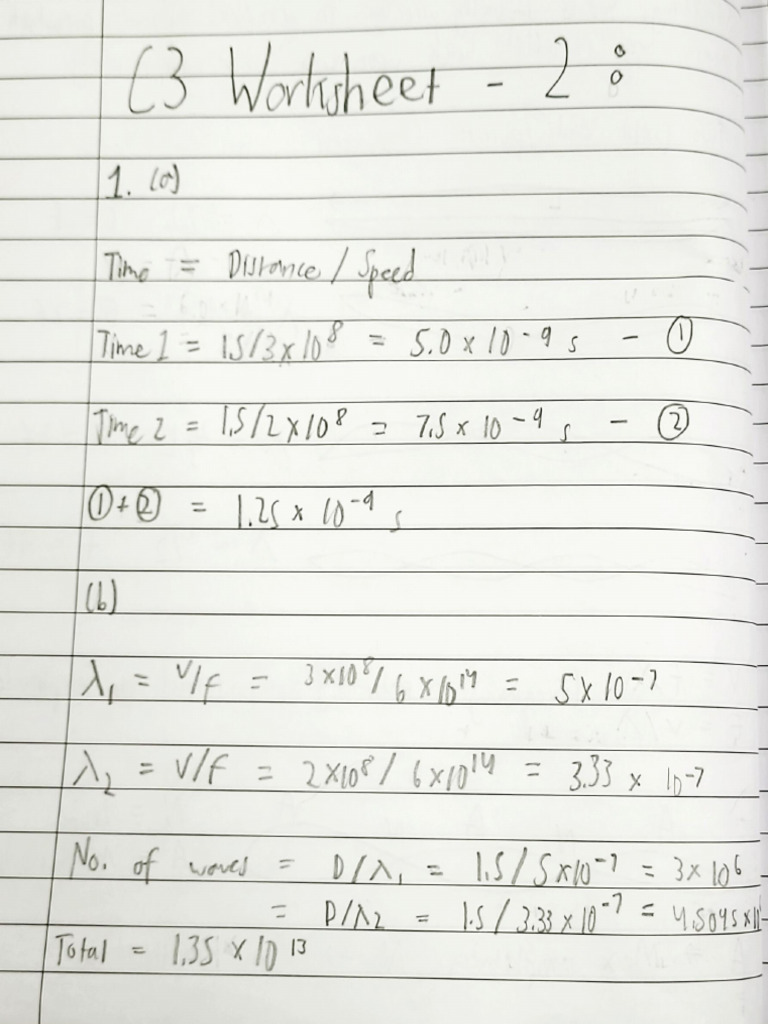 C3 Worksheet - 2 :
1. (a)
Time = Distance / Speed
Time 1 = 1.5/3×10⁸ = 5.0 × 10⁻⁹ s - ①
Time 2 = 1.5/2×10⁸ = 7.5 × 10⁻⁹ s - ②
①+② = 1.25 × 10⁻⁹ s
(b)
λ₁ = V/f = 3×10⁸/6×10¹⁴ = 5×10⁻⁷
λ₂ = V/f = 2×10⁸/6×10¹⁴ = 3.33 × 10⁻⁷
No. of waves = D/λ₁ = 1.5/5×10⁻⁷ = 3×10⁶
= D/λ2 = 1.5/3.33×10⁻⁷ = 4.5045×1
Total = 1.35 × 10¹³